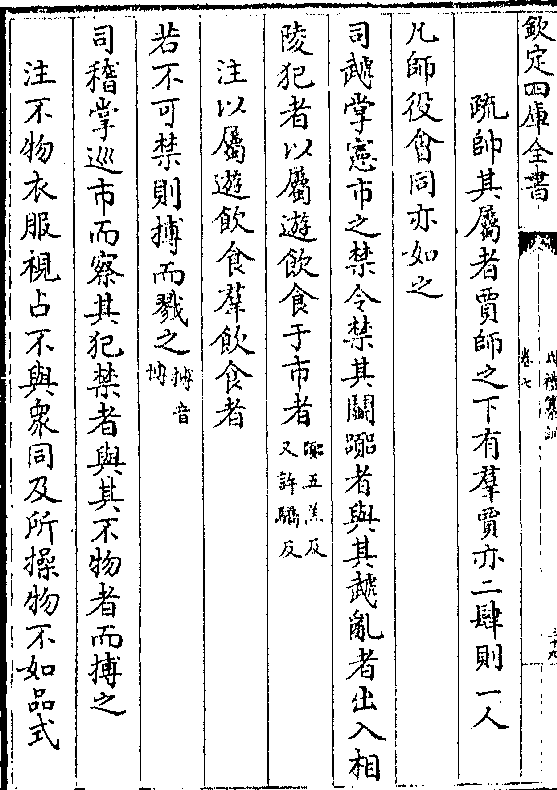 欽定四庫全書
卷七
疏帥其屬者賈師之下有羣賈亦二肆則一人
凡師役會同亦如之
司虣掌憲市之禁令禁其鬬嚻者與其虣亂者出入相
陵犯者以屬遊飲食于市者嚻五羔反又許驕反
注以屬遊飲食羣飲食者
若不可禁則搏而戮之搏音博
司稽掌巡市而察其犯禁者與其不物者而搏之
注不物衣服視占不與衆同及所操物不如品式